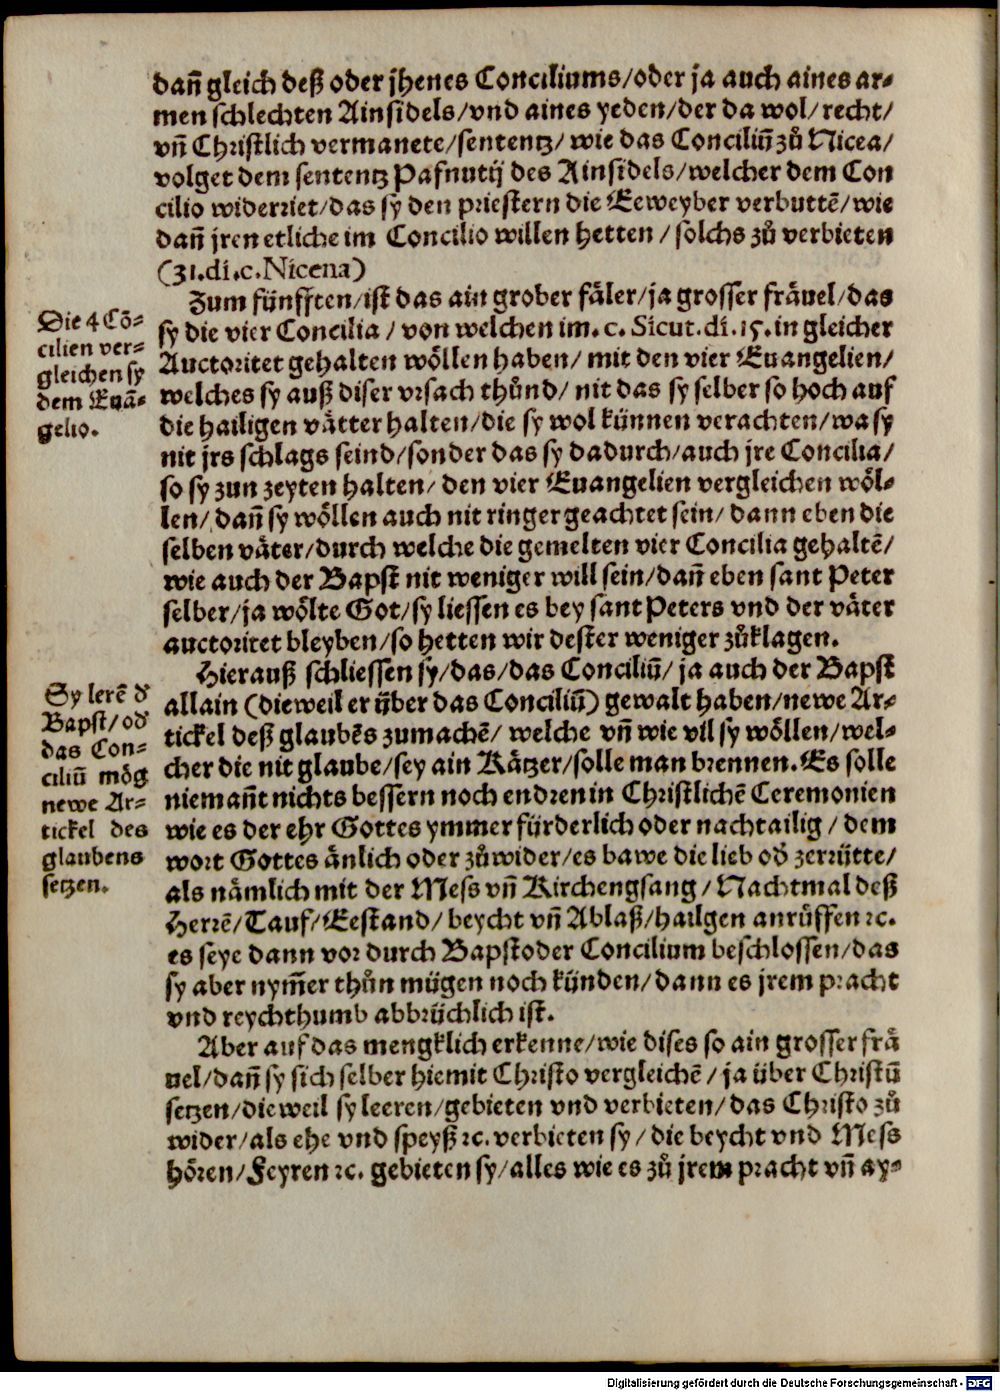 dañ gleich deß oder jhenes Conciliums/oder ja auch aines ar-
men schlechten Ainsidels/vnd aines yeden/der da wol/recht/
vñ Christlich vermanete/sententz/wie das Conciliũ zů Nicea/
volget dem sententz Pafnutij des Ainsidels/welcher dem Con
cilio widerriet/das sy den priestern die Eeweyber verbuttē/wie
dañ jren etliche im Concilio willen hetten/solchs zů verbieten
(31.di.c.Nicena)
Zum fünfften/ist das ain grober fäler/ja grosser fräuel/das
sy die vier Concilia/von welchen im.c.Sicut.di.15.in gleicher
Auctoritet gehalten wöllen haben/mit den vier Euangelien/
welches sy auß diser vrsach thůnd/nit das sy selber so hoch auf
die hailigen vätter halten/die sy wol künnen verachten/wa sy
nit jrs schlags seind/sonder das sy dadurch/auch jre Concilia/
so sy zun zeyten halten/den vier Euangelien vergleichen wöl-
len/dañ sy wöllen auch nit ringer geachtet sein/dann eben die
selben väter/durch welche die gemelten vier Concilia gehaltē/
wie auch der Bapst nit weniger will sein/dañ eben sant Peter
selber/ja wölte Got/sy liessen es bey sant Peters vnd der väter
auctoritet bleyben/so hetten wir dester weniger zůklagen.
Die 4 Cō-
cilien ver-
gleichen sy
dem Euā-
gelio.
Hierauß schliessen sy/das/das Conciliũ/ja auch der Bapst
allain (dieweil er über das Conciliũ) gewalt haben/newe Ar-
tickel deß glaubēs zumachē/welche vñ wie vil sy wöllen/wel-
cher die nit glaube/sey ain Kätzer/solle man brennen.Es solle
niemañt nichts bessern noch endren in Christlichē Ceremonien
wie es der ehr Gottes ymmer fürderlich oder nachtailig/dem
wort Gottes änlich oder zůwider/es bawe die lieb oď zerrütte/
als nämlich mit der Mess vñ Kirchengsang/Nachtmal deß
Herrē/Tauf/Eestand/beycht vñ Ablaß/hailgen anrůffen ꝛc.
es seye dann vor durch Bapst oder Concilium beschlossen/das
sy aber nym̃er thůn mügen noch künden/dann es jrem pracht
vnd reychthumb abbrüchlich ist.
Sy lerē ď
Bapst/oď
das Con-
ciliũ mög
newe Ar-
tickel des
glaubens
setzen.
Aber auf das mengklich erkenne/wie dises so ain grosser frä
uel/dañ sy sich selber hiemit Christo vergleichē/ja über Christũ
setzen/dieweil sy leeren/gebieten vnd verbieten/das Christo zů
wider/als ehe vnd speyß ꝛc.verbieten sy/die beycht vnd Mess
hören/Feyren ꝛc. gebieten sy/alles wie es zů jrem pracht vñ ay-
Digitalisierung gefördert durch die Deutsche Forschungsgemeinschaft - DFG